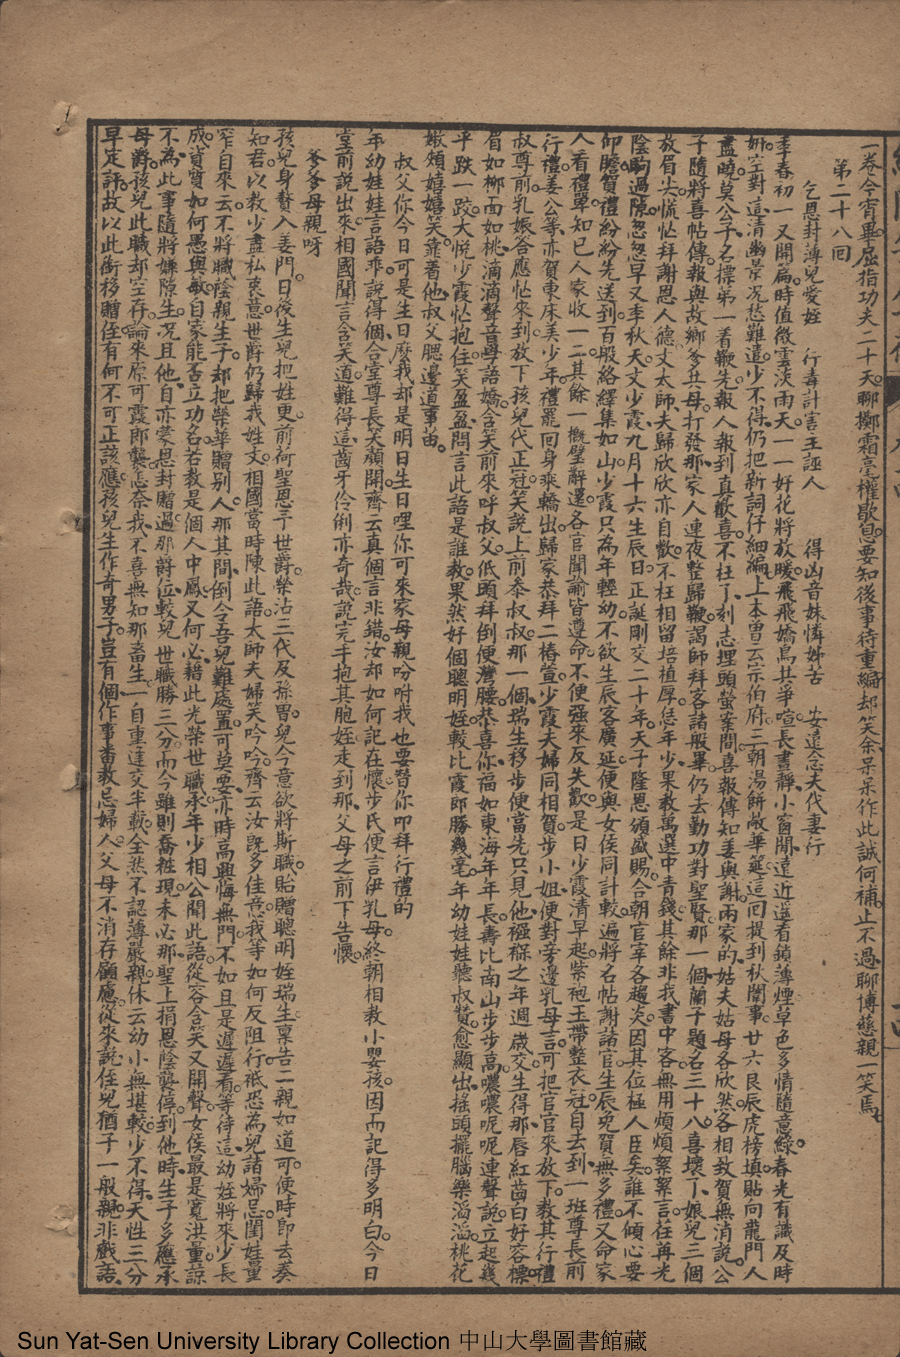 一卷今宵畢屈指功夫二十天聊擲霜亳權歇息要知後事待重編却笑余呆呆作此誠何補止不過聊博慈親一笑焉
第二十八回
乞恩封薄兒愛姪 行毒計害王誣人 得凶音妹憐姊苦 安遠念夫代妻行
季春初一又開扁時值微雲淡雨天一一好花將放暖飛飛嬌鳥共爭喧長書靜小窗閒遠近遥看鎖薄煙草色多情隨意綠春光有識及時
妍空對這清幽景况愁難遣少不得仍把新詞仔細編上本曾云示伯府三朝湯餅敞華筵這回提到秋闈事廿六艮辰虎榜填貼向龍門人
盡曉莫公子名標第一看鞭先報人報到真歡喜不枉了刻志埋頭螢案間喜報傳知姜與謝兩家的姑夫姑母各欣然各相致賀無消說公
子隨將喜帖傳報與故鄉爹共母打發那家人連夜整歸鞭謁師拜客諸般畢仍去勤功對聖賢那一個蘭子題名三十八喜壞了娘兒三個
放眉尖慌忙拜謝恩人德文太師夫歸欣欣亦自歡不枉相留培植厚恁年少果教萬選中青錢其餘非我書中客無用煩煩絮絮言荏苒光
陰駒過隙忽忽早又季秋天文少霞九月十六生辰日正誕剛交二十年天子隆恩頒盛賜合朝官宰各趨炎因其位極人臣矣誰不傾心要
仰瞻賀禮紛紛先送到百般絡繹集如山少霞只為年輕幼不欲生辰客廣延便與女侯同計較遍將名帖謝諸官生辰免賀無多禮又命家
人看禮單知已人家收一二其餘一概璧辭還各官聞諭皆遵命不便強來反失歡是日少霞清早起紫袍玉帶整衣冠自去到一班尊長前
行禮姜公等亦賀東床美少年禮罷回身乘轎出歸家恭拜二椿萱少霞夫婦同相賀步小姐便對旁邊乳母言可把官官來放下教其行禮
叔尊前乳娘答應忙來到放下孩兒代正冠笑說上前恭叔叔那一個瑞生移步便當先只見他襁褓之年週歲交生得那唇紅齒白好容標
眉如柳面如桃滴滴聲音學語嬌含笑前來呼叔父低頭拜倒便灣腰恭喜你福如東海年年長壽比南山步步高噥噥呢呢連聲說立起幾
乎跌一跤大悅少霞忙抱住笑盈盈問言此語是誰教果然好個聰明姪較比霞郎勝幾毫年幼娃娃聽叔贊愈顯出搖頭擺腦樂滔滔桃花
嫩頰嬉嬉笑靠著他叔父腮邊道事由
叔父你今日可是生日麼我却是明日生日哩你可來家母親吩咐我也要替你叩拜行禮的
年幼娃娃言語乖說得個合堂尊長笑顏開齊云真個言非錯汝却如何記在懷步氏便言伊乳母終朝相教小嬰孩因而記得多明白今日
堂前說出來相國聞言含笑道難得這齒牙伶俐亦奇哉說完手抱其胞姪走到那父母之前下告懷
爹爹母親呀
孩兒身贅入姜門日後生兒把姓更前荷聖恩予世爵榮沾三代及孫曾兒今意欲將斯職貽贈聰明姪瑞生稟告二親如道可便時即去奏
知君以教少盡私衷意世爵仍歸我姓文相國當時陳此語太師夫婦笑吟吟齊云汝既多佳意我等如何反阻行祇恐為兒諸婦忌閨娃量
窄自來云不將職蔭親生子却把榮華贈别人那其間倒令吾兒難處置可莫要亦時高興悔無門不如且是遲遲看等待這幼姪將來少長
成資質如何愚與敏自家能否立功名若教是個人中鳳又何必藉此光榮世職承年少相公聞此語從容含笑又開聲女侯最是寬洪量諒
不為此事隨將嫌隙生况且他自亦蒙恩封贈過那爵位較兒世職勝三分而今雖則喬粧現未必那聖上捐恩蔭襲停到他時生子多應承
母爵孩兒此職却空存論來原可霞郎襲怎奈我不喜無知那畜生一自重逢交半載全然不認薄嚴親休云幼小無堪較少不得天性三分
早定評故以此銜移贈侄有何不可正該應孩兒生作奇男子豈有個作事番教忌婦人父母不消存顧慮從來說侄兒猶子一般親非戲語
Sun Yat-Sen University Library Collection 中山大學圖書館藏